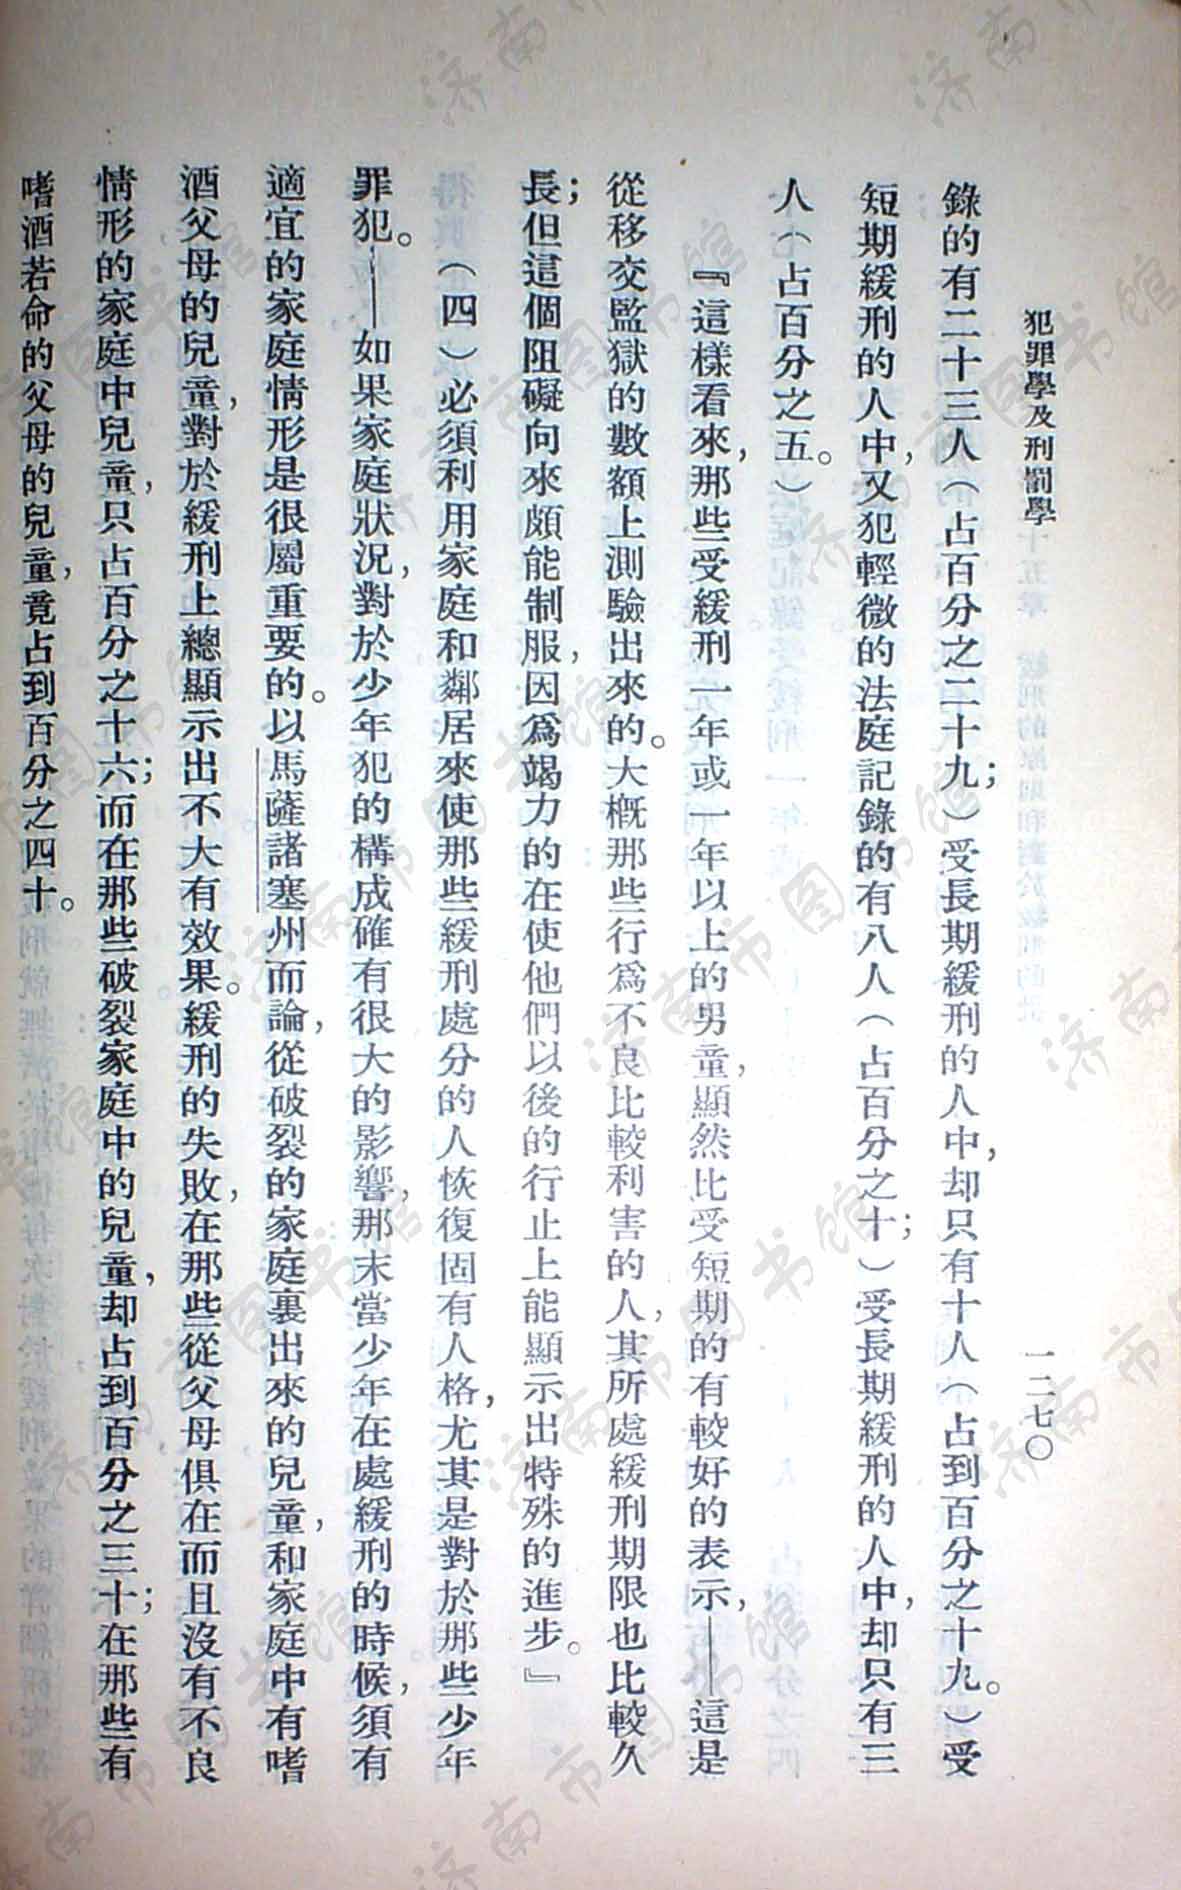 犯罪學及刑罰學
一二七〇
錄的有二十三人（占百分之二十九；）受長期緩刑的人中，却只有十人（占到百分之十九。）受
短期緩刑的人中，又犯輕微的法庭記錄的有八人（占百分之十；）受長期緩刑的人中，却只有三
人（占百分之五。）
『這樣看來，那些受緩刑一年或一年以上的男童，顯然比受短期的有較好的表示，——這是
從移交監獄的數額上測驗出來的。大概那些行爲不良比較利害的人，其所處緩刑期限也比較久
長；但這個阻礙向來頗能制服，因爲竭力的在使他們以後的行止上能顯示出特殊的進步。』
（四）必須利用家庭和鄰居來使那些緩刑處分的人恢復固有人格，尤其是對於那些少年
罪犯。——如果家庭狀況，對於少年犯的構成確有很大的影響，那末當少年在處緩刑的時候，須有
適宜的家庭情形是很屬重要的。以馬薩諸塞州而論，從破裂的家庭裏出來的兒童，和家庭中有嗜
酒父母的兒童，對於緩刑上總顯示出不大有效果。緩刑的失敗，在那些從父母俱在而且沒有不良
情形的家庭中兒童，只占百分之十六；而在那些破裂家庭中的兒童，却占到百分之三十；在那些有
嗜酒若命的父母的兒童，竟占到百分之四十。
济南市图书馆
济南市图书馆
济南市图书馆
济南市图书馆